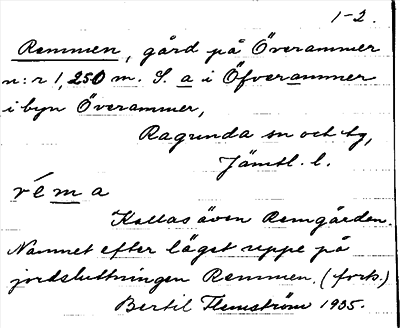 1-2.
Remmen, gård på Överammer
n:r 1, 250 m. S. a i Öfverammer
i byn Överammer,
Ragunda sn och tg,
Jämtl. l.
réma
Kallas även Remgården.
Namnet efter läget uppe på
jordsluttningen Remmen. (forts.)
Bertil Flemström 1935.